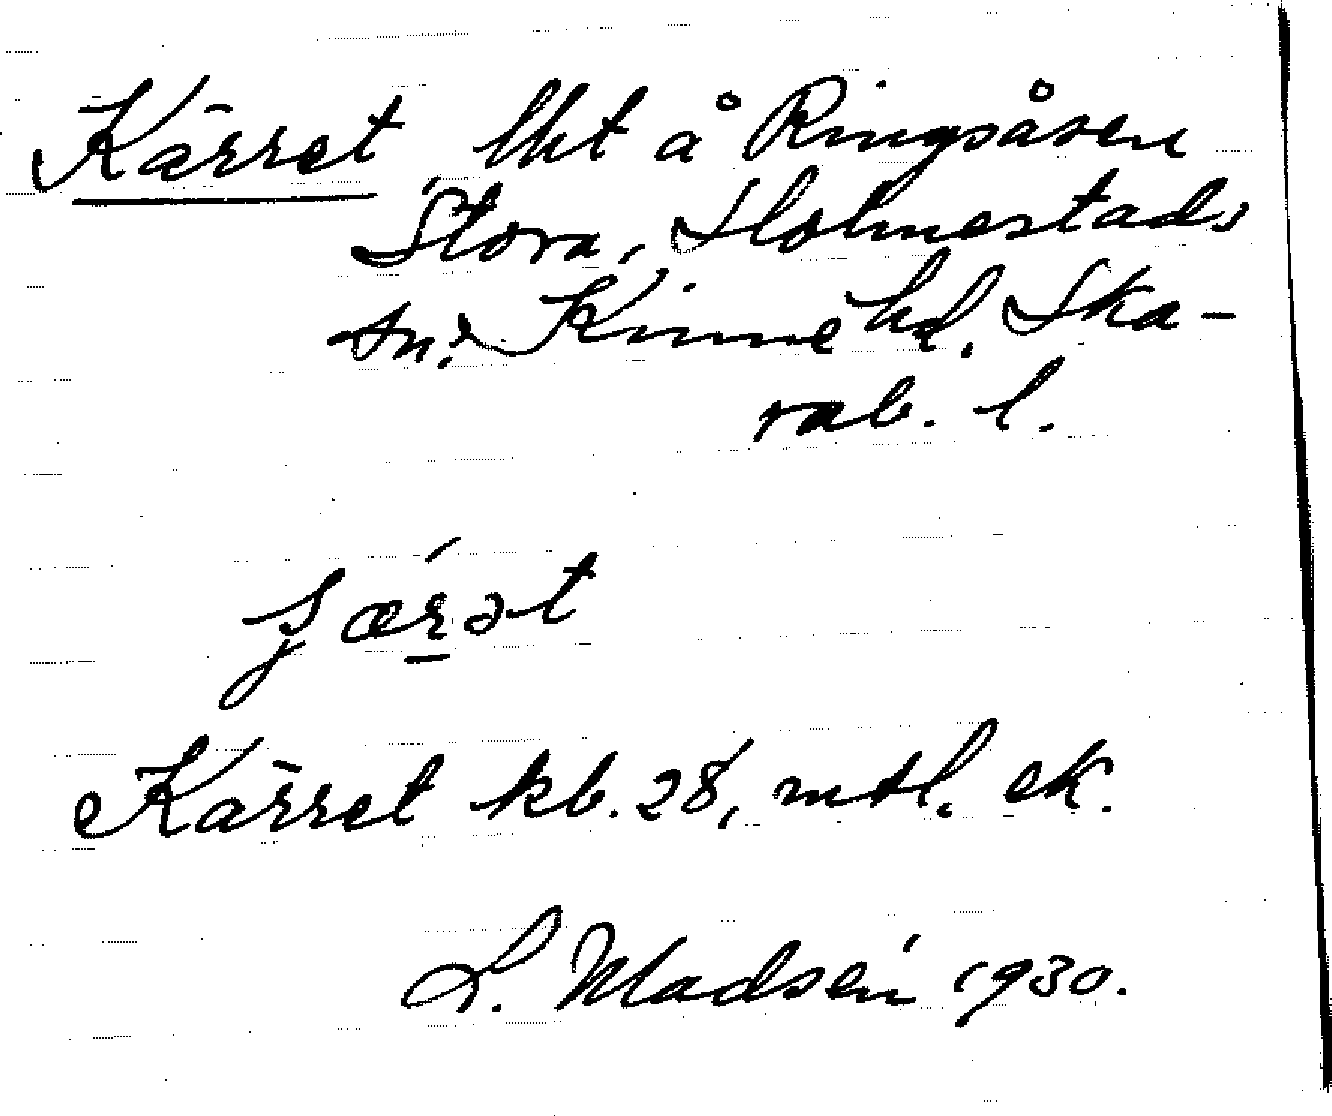 Kärret lht å Ringsåsen
Stora, Holmestads
sn. Kinne hd. Ska-
rab. l.
ʂǽrət
Kärret kb. 28, mtl. ek.
L. Madsén 1930.